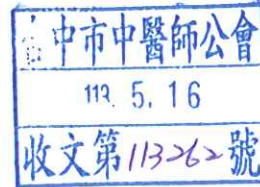 台中市中醫師公會
113. 5. 16
收文第113262號